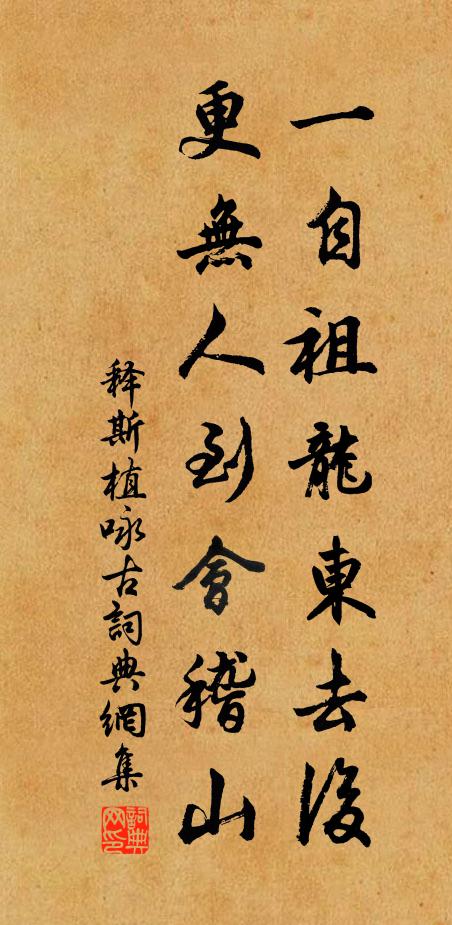 一自祖龍東去後
更無人到會稽山
释斯植咏古詞典網集
詞典網印